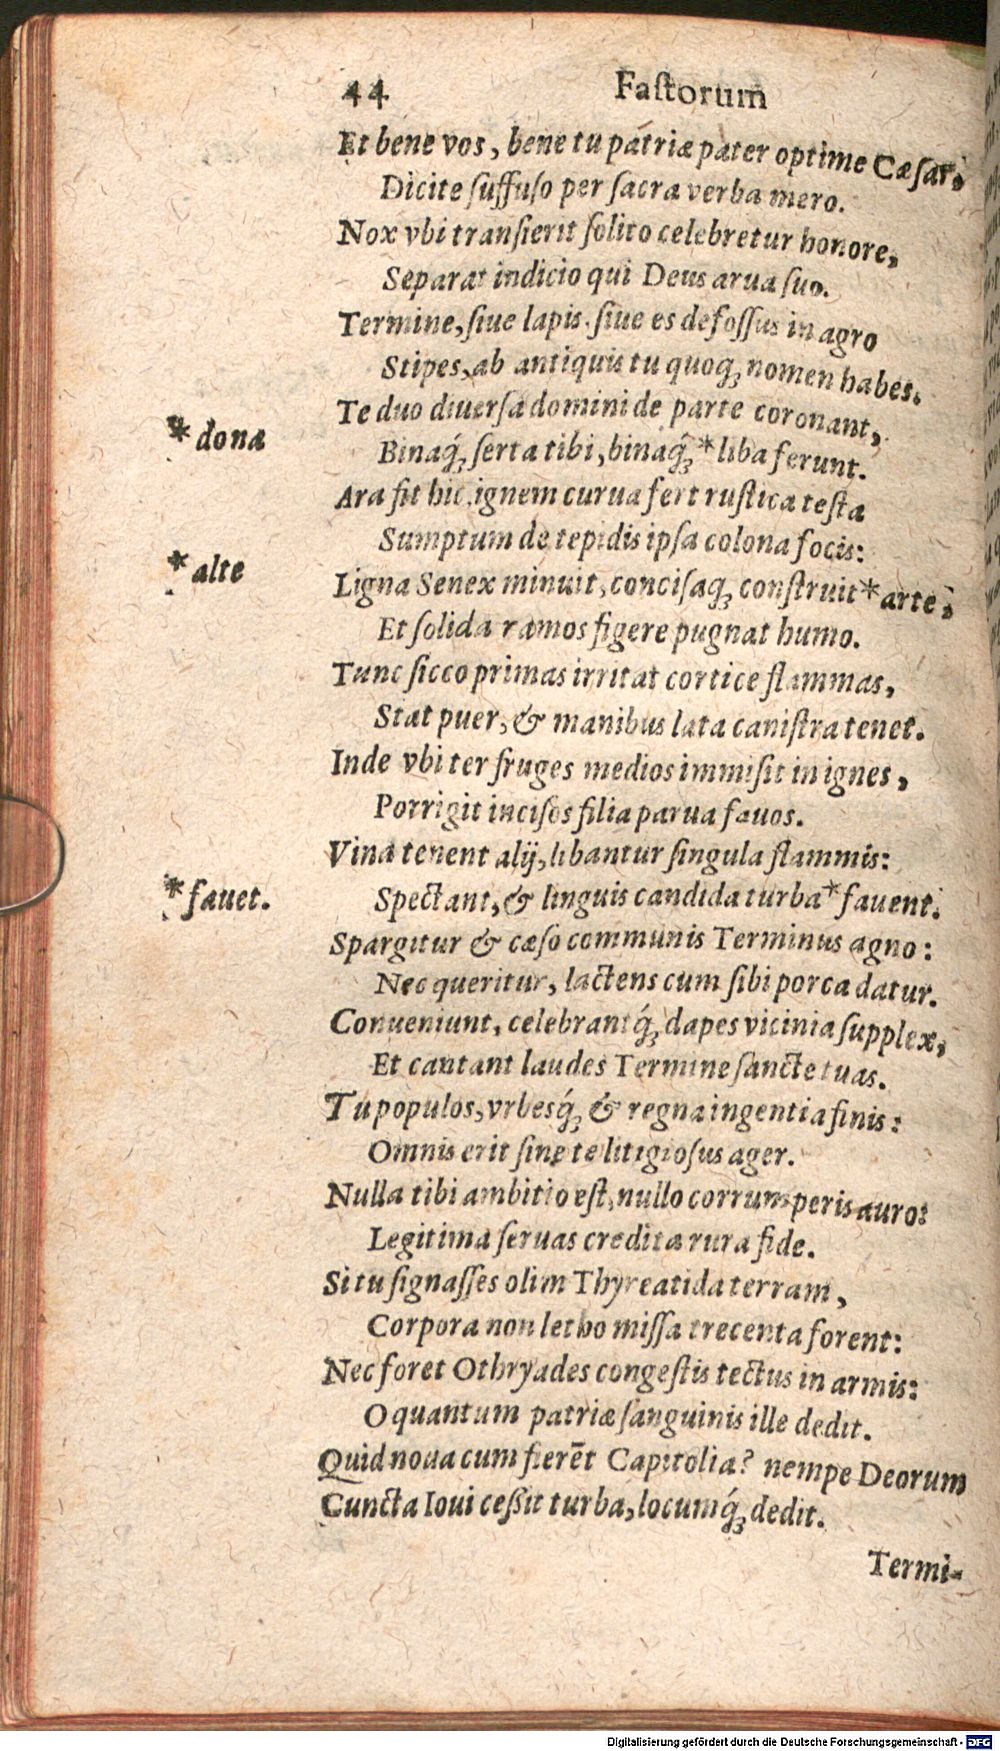 44 Faſtorum
Et bene vos, bene tu patriæ pater optime Cæſar,
Dicite ſuffuſo per ſacra verba mero.
Nox vbi tranſierit ſolito celebretur honore,
Separat indicio qui Deus arua ſuo.
Termine, ſiue lapis. ſiue es defoſſus in agro
Stipes, ab antiquis tu quoq́ꝫ nomen habes.
Te duo diuerſa domini de parte coronant,
*donæ
Binaq́ꝫ ſerta tibi, binaq́ꝫ *liba ferunt.
Ara fit hic. ignem curua fert ruſtica teſta
Sumptum de tepidis ipſa colona focis:
*alte
Ligna Senex minuit, conciſaqꝫ conſtruit *arte,
Et ſolida ramos figere pugnat humo.
Tunc ſicco primas irritat cortice flammas,
Stat puer, & manibus lata caniſtra tenet.
Inde vbi ter fruges medios immiſit in ignes,
Porrigit inciſos filia parua fauos.
Vina tenent alij, libantur ſingula flammis:
*fauet.
Spectant, & linguis candida turba *fauent.
Spargitur & cæſo communis Terminus agno:
Nec queritur, lactens cum ſibi porca datur.
Conueniunt, celebrantq́ꝫ dapes vicinia ſupplex,
Et cantant laudes Termine ſancte tuas.
Tu populos, vrbesq́ꝫ & regna ingentia finis:
Omnis erit ſine te litigioſus ager.
Nulla tibi ambitio eſt, nullo corrumperis auro:
Legitima ſeruas credita rura fide.
Si tu ſignaſſes olim Thyreatida terram,
Corpora non letho miſſa trecenta forent:
Nec foret Othryades congeſtis tectus in armis:
O quantum patriæ ſanguinis ille dedit.
Quid noua cum fierēt Capitolia? nempe Deorum
Cuncta Ioui ceßit turba, locumq́ꝫ dedit.
Termi-
Digitalisierung gefördert durch die Deutsche Forschungsgemeinschaft - DFG